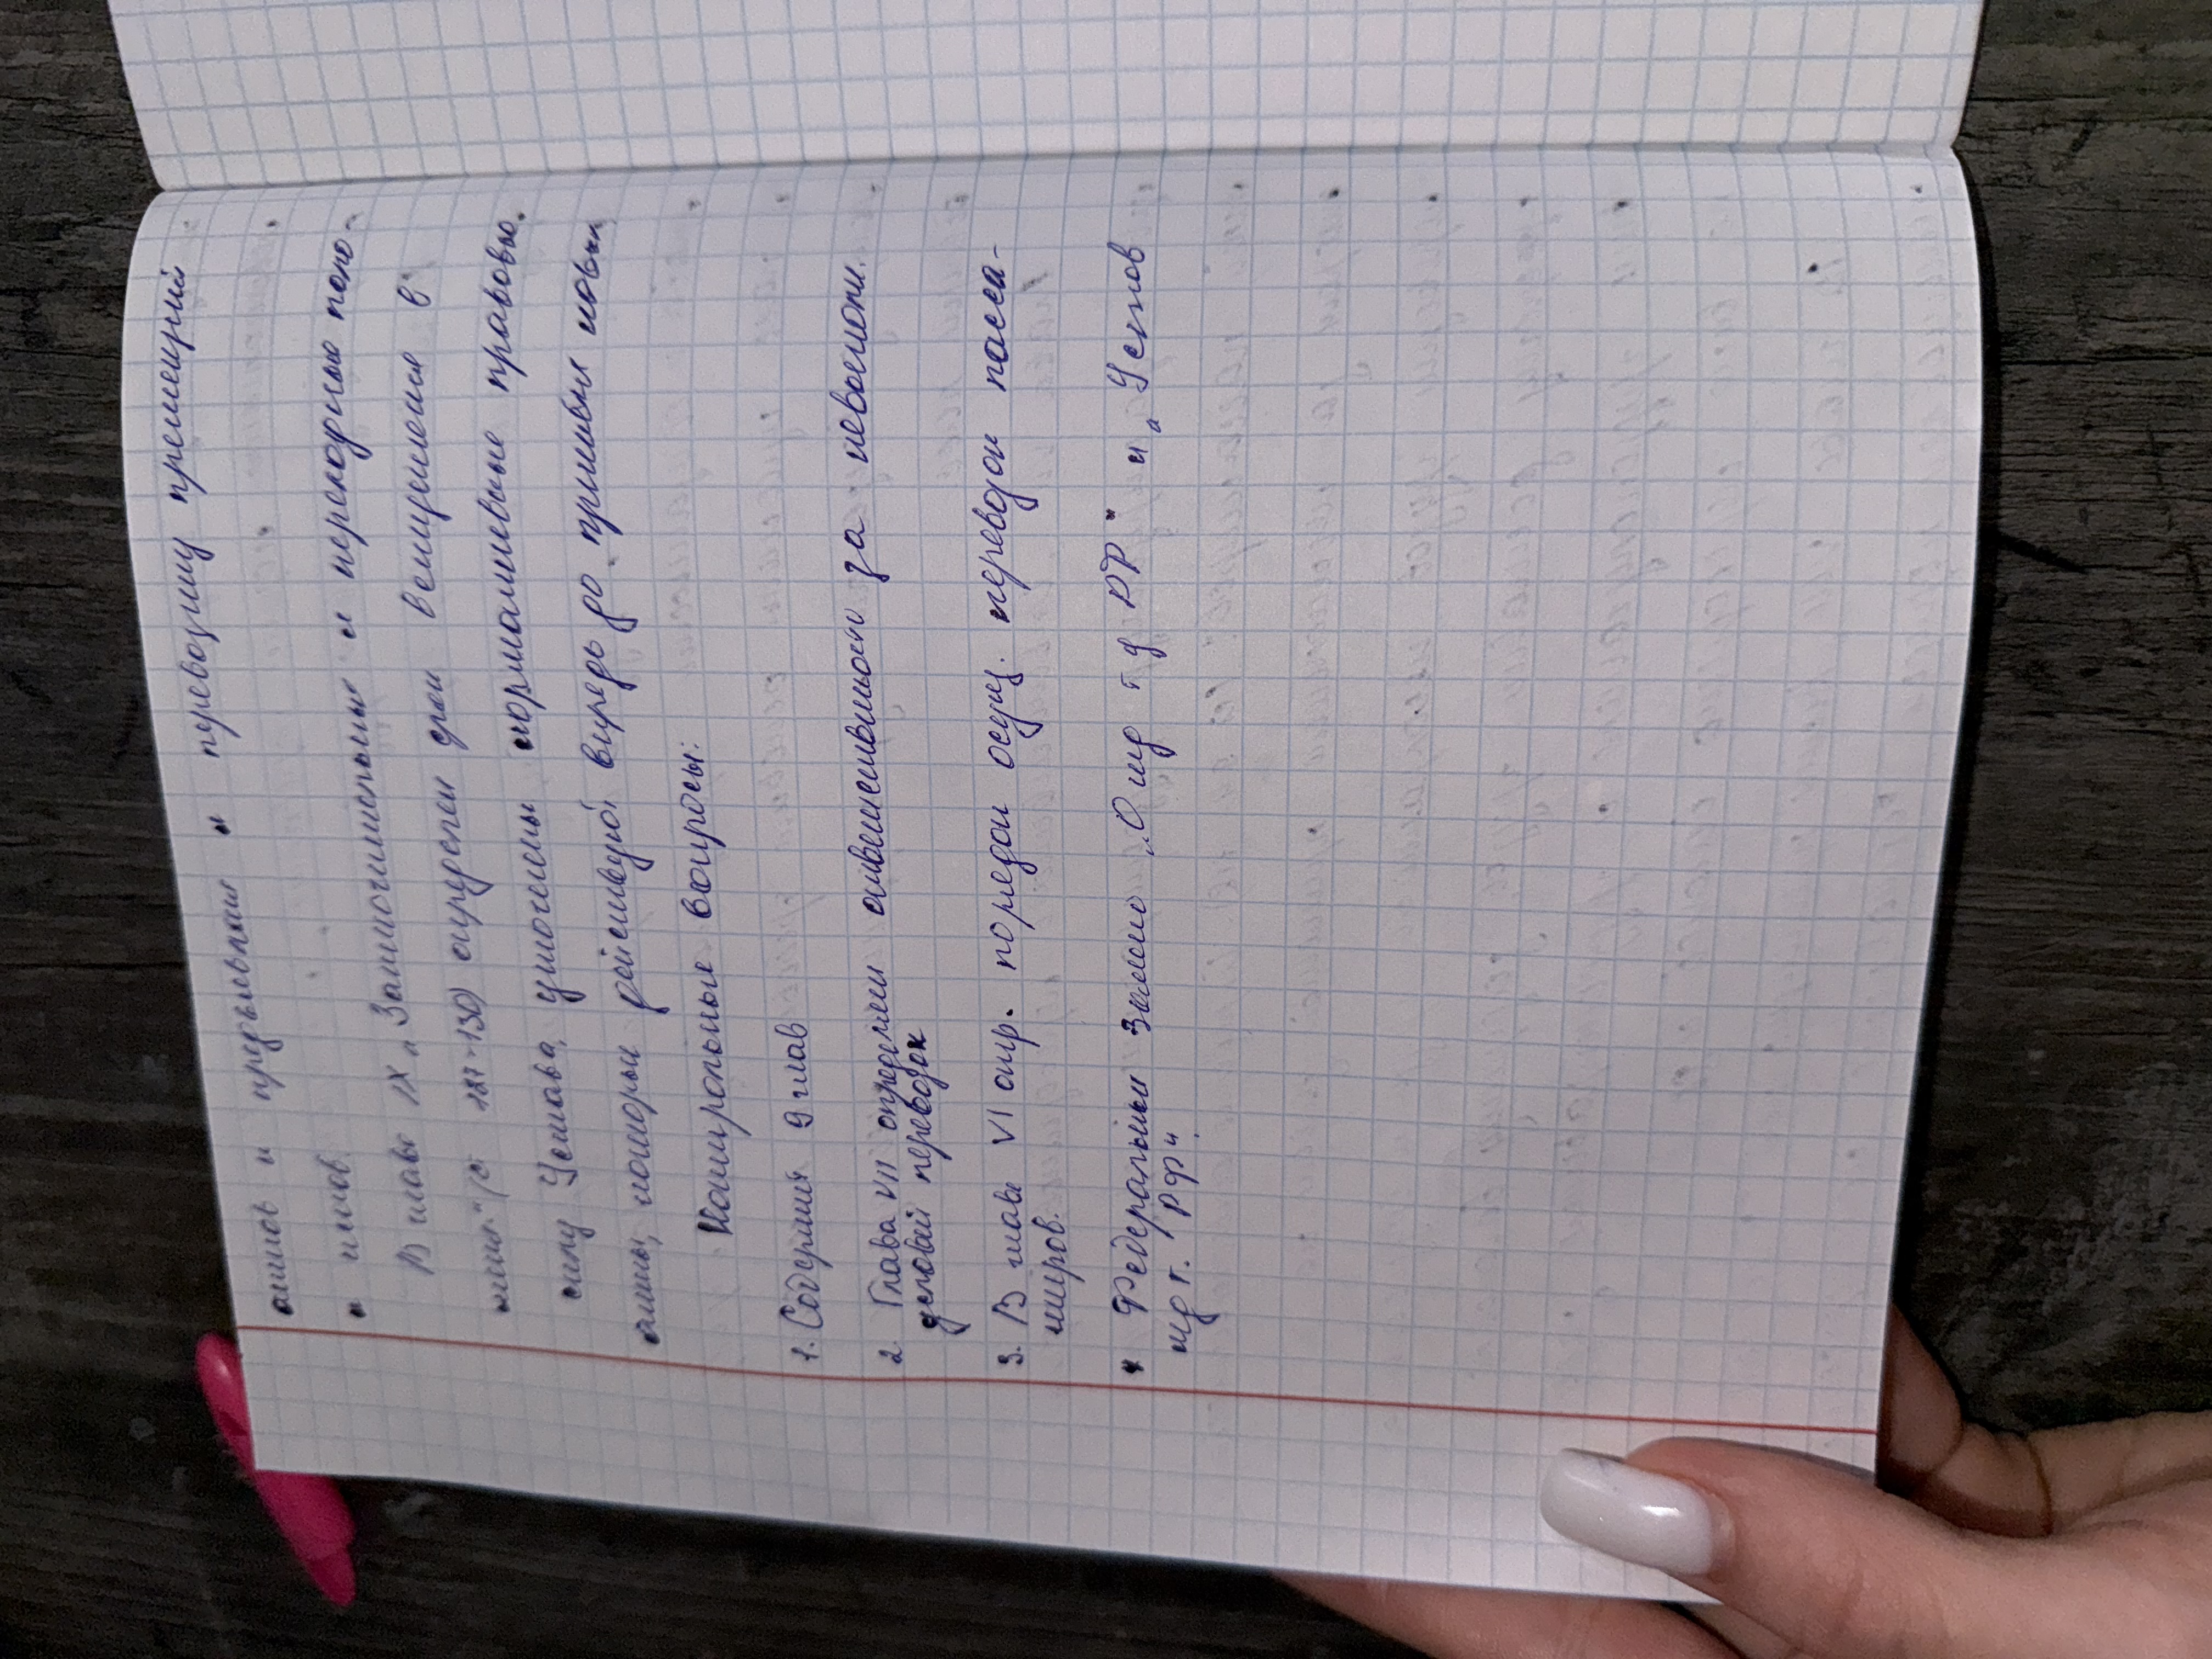 актов и предъявлении и перевозчику претензий
и исков.
В главе IX „Заключительные и переходные поло-
жения" (ст 127-130) определен день вступления в
силу Устава, уточнены нормативные правовые
акты, которые действуют впредь до принятия новых
Контрольные вопросы:
1. Содержит 9 глав
2. Глава VII определяет ответственность за невыполн.
условий перевозок
3. В главе VI опр. порядок осущ. перевозок пасса-
жиров.
* Федеральный Закон „О жд т д РФ" и „Устав
жд т. РФ".